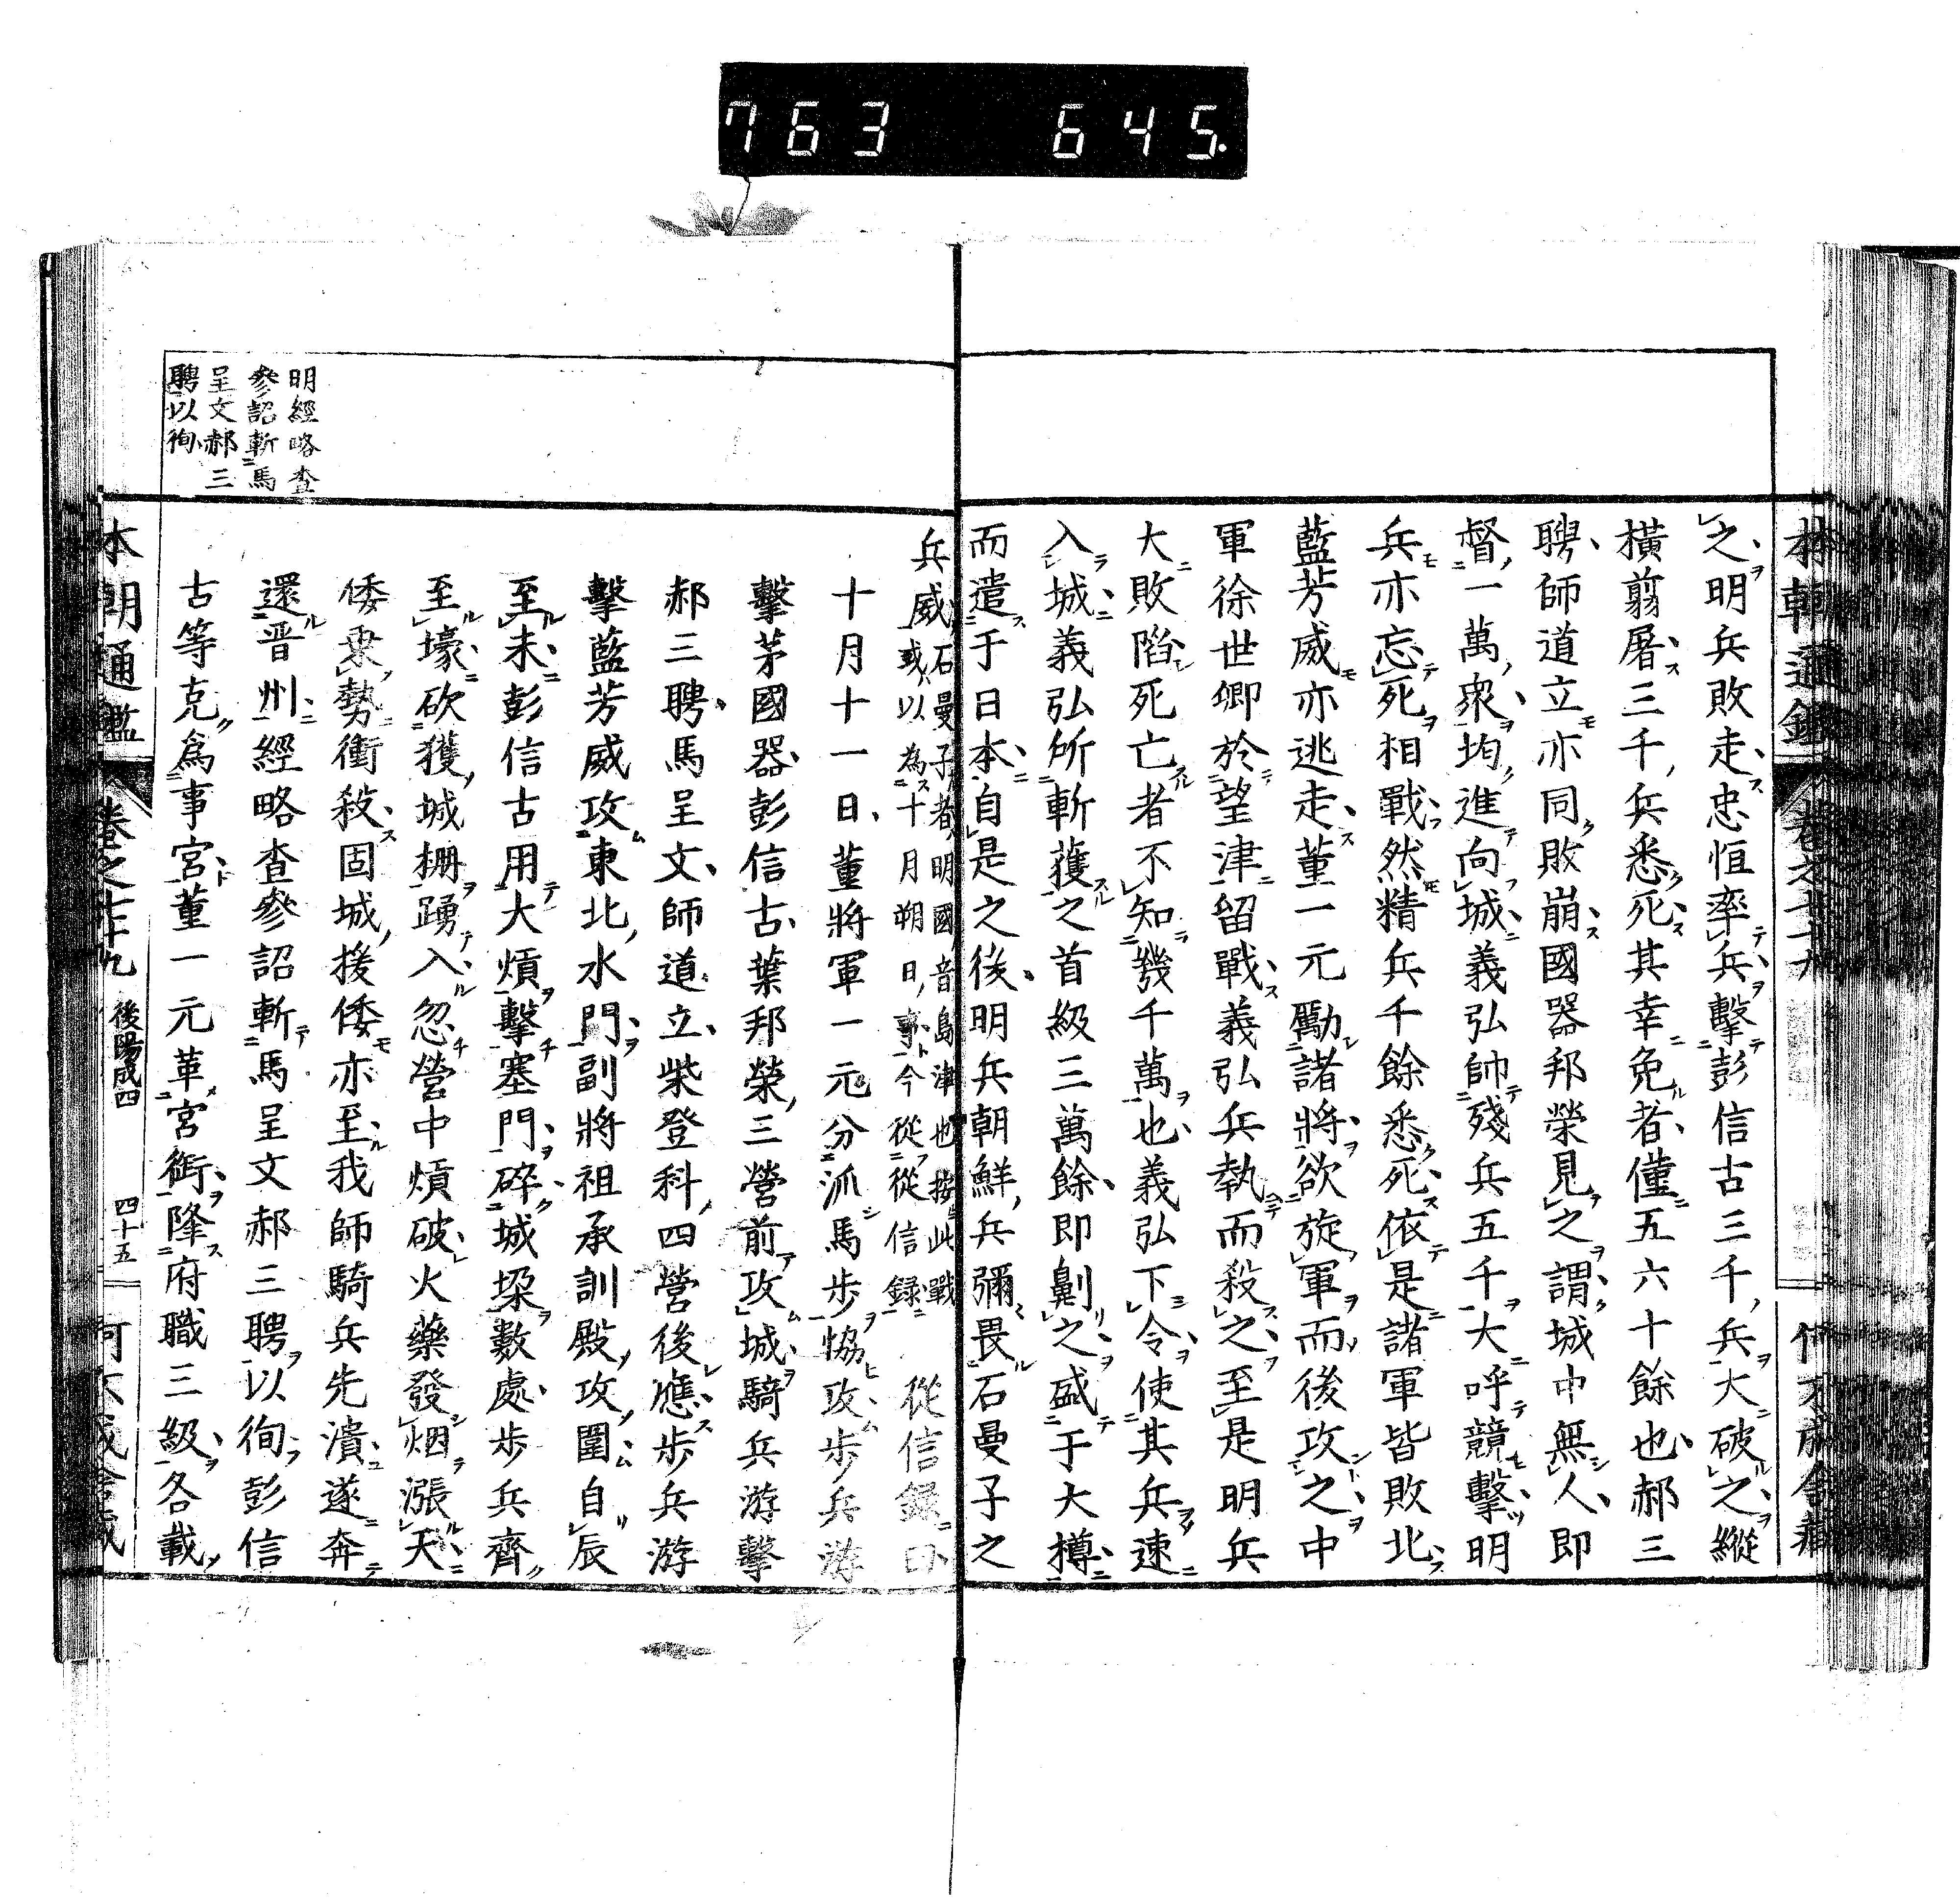 763 645.
之明兵敗走忠恒率兵擊彭信古三千兵大破之縱
橫翦屠三千兵悉死其幸免者僅五六十餘也郝三
聘師道立亦同敗崩國器邦榮見之謂城中無人即
督一萬衆均進向城義弘帥殘兵五千大呼競擊明
兵亦忘死相戰然精兵千餘悉死依是諸軍皆敗北
藍芳威亦逃走董一元勵諸將欲旋軍而後攻之中
軍徐世卿於望津留戰義弘兵執而殺之至是明兵
大敗陷死亡者不知幾千萬也義弘下令使其兵速
入城義弘所斬獲之首級三萬餘即劓之盛于大樽
而遣于日本自是之後明兵朝鮮兵彌畏石曼子之
兵威石曼子者明國音島津也按此戰
或以為十月朔日事今從從信録 從信録曰
十月十一日董將軍一元分派馬步協攻步兵游
擊茅國器彭信古葉邦榮三營前攻城騎兵游擊
郝三聘馬呈文師道立柴登科四營後應步兵游
擊藍芳威攻東北水門副將祖承訓殿攻圍自辰
至未彭信古用大熕擊塞門碎城垜數處步兵齊
至壕砍獲城栅踴入忽營中熕破火藥發烟漲天
倭乘勢衝殺固城援倭亦至我師騎兵先潰遂奔
還晋州經略查參詔斬馬呈文郝三聘以徇彭信
古等克爲事宮董一元革宮銜降府職三級各載
明經略查
參詔斬馬
呈文郝三
聘以徇
本朝通鑑 卷之七十九 後陽成四 四十五